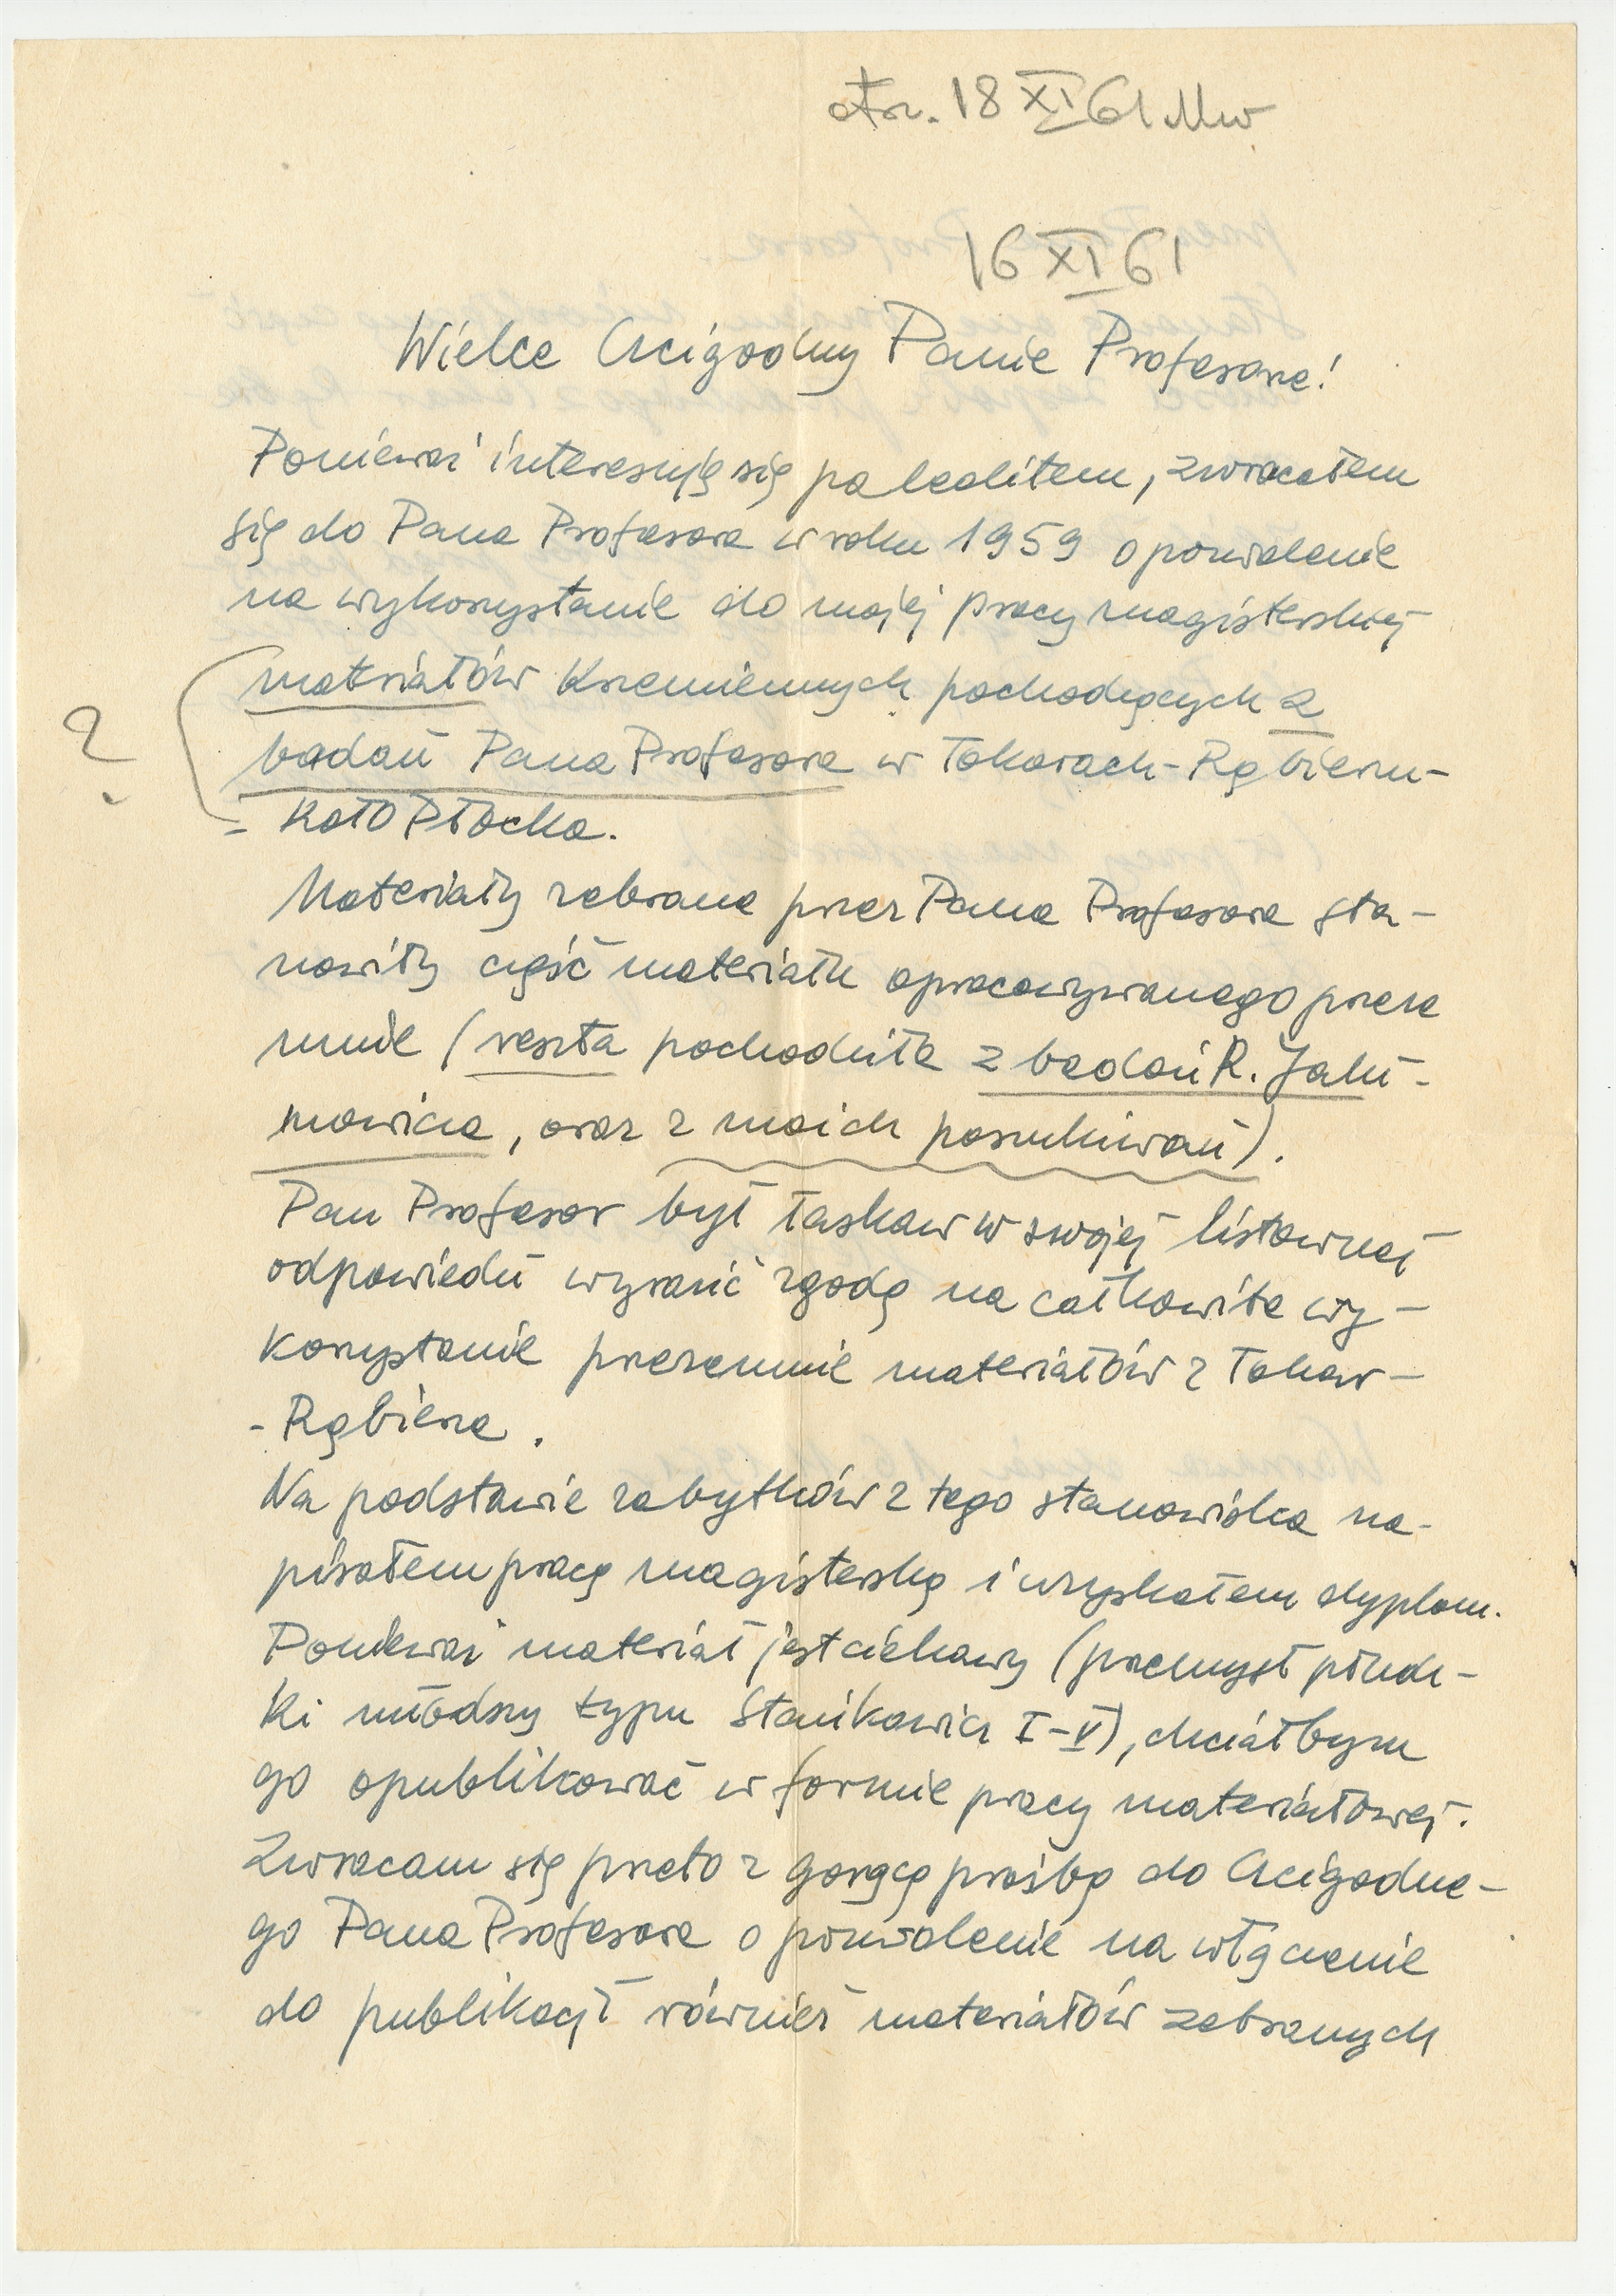 otrz. 18 XI 61 Mw
16 XI 61
Wielce Czcigodny Panie Profesorze!
Ponieważ interesuję się paleolitem, zwracałem
się do Pana Profesora w roku 1959 o pozwolenie
na wykorzystanie do mojej pracy magisterskiej
?
matriałów krzemiennych pochodzących z
badań Pana Profesora w Tokarach-Rąbierzu-
- koło Płocka.
Materiały zebrane przez Pana Profesora sta-
nowiły część materiału opracowywanego przeze
mnie (reszta pochodziła z badań R. Jaki-
mowicza, oraz z moich poszukiwań).
Pan Profesor był łaskaw w swojej listownej
odpowiedzi wyrazić zgodę na całkowite wy-
korzystanie przezemnie materiałów z Tokar-
- Rąbierza.
Na podstawie zabytków z tego stanowiska na-
pisałem pracę magisterską i uzyskałem dyplom.
Ponieważ materiał jest ciekawy (przemysł płudz-
ki młodszy typu Stańkowicz I-V), chciałbym
go opublikować w formie pracy materiałowej.
Zwracam się przeto z gorącą prośbą do Czcigodne-
go Pana Profesora o pozwolenie na włączenie
do publikacji również materiałów zebranych